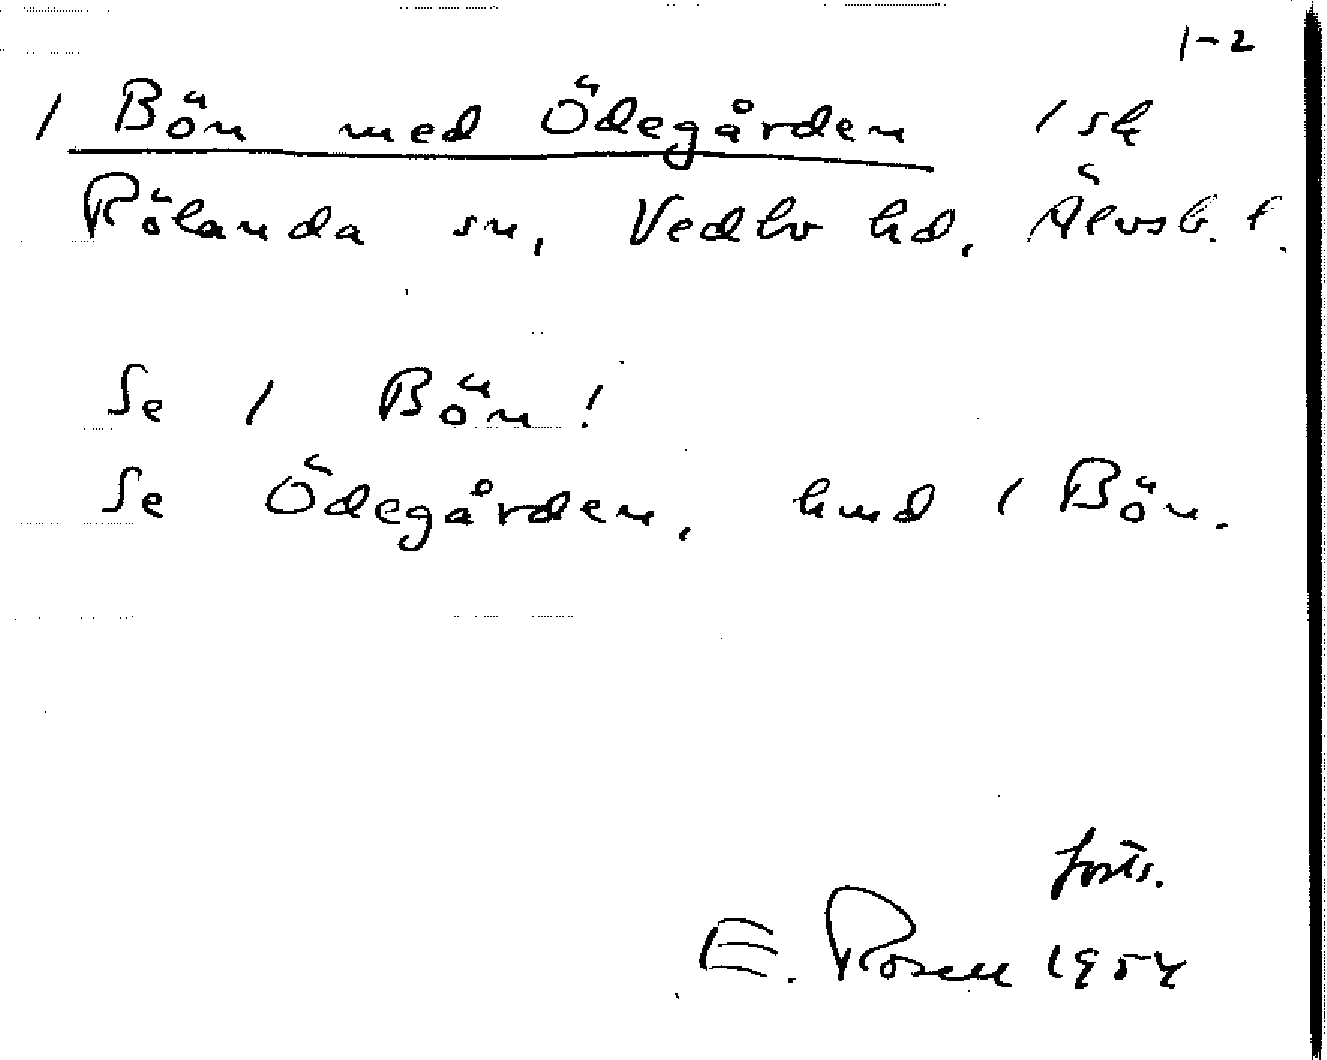 1-2
1 Bön med Ödegården 1 sk
Rölanda sn, Vedbo hd, Älvsb. l.
Se 1 Bön!
Se Ödegården, und 1 Bön.
forts.
E. Rosell 1954